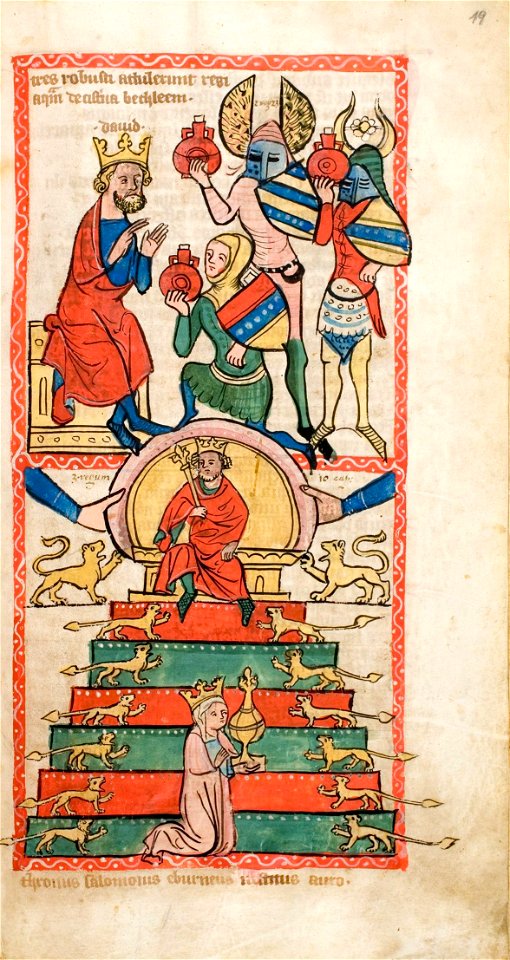 19
tres robusti attulerunt regi
aq̄m de cist̄na bethleem ·
· david ·
3 · regum
10 cap̄
thronus salomonis eburneus auro ·